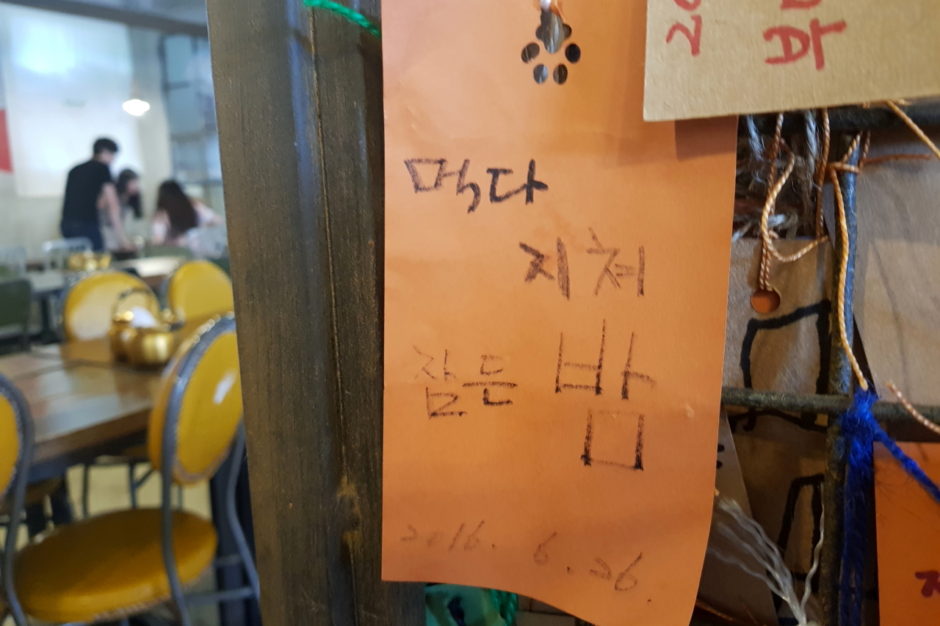 먹다
지쳐
잠든 밤
2016. 6. 26.